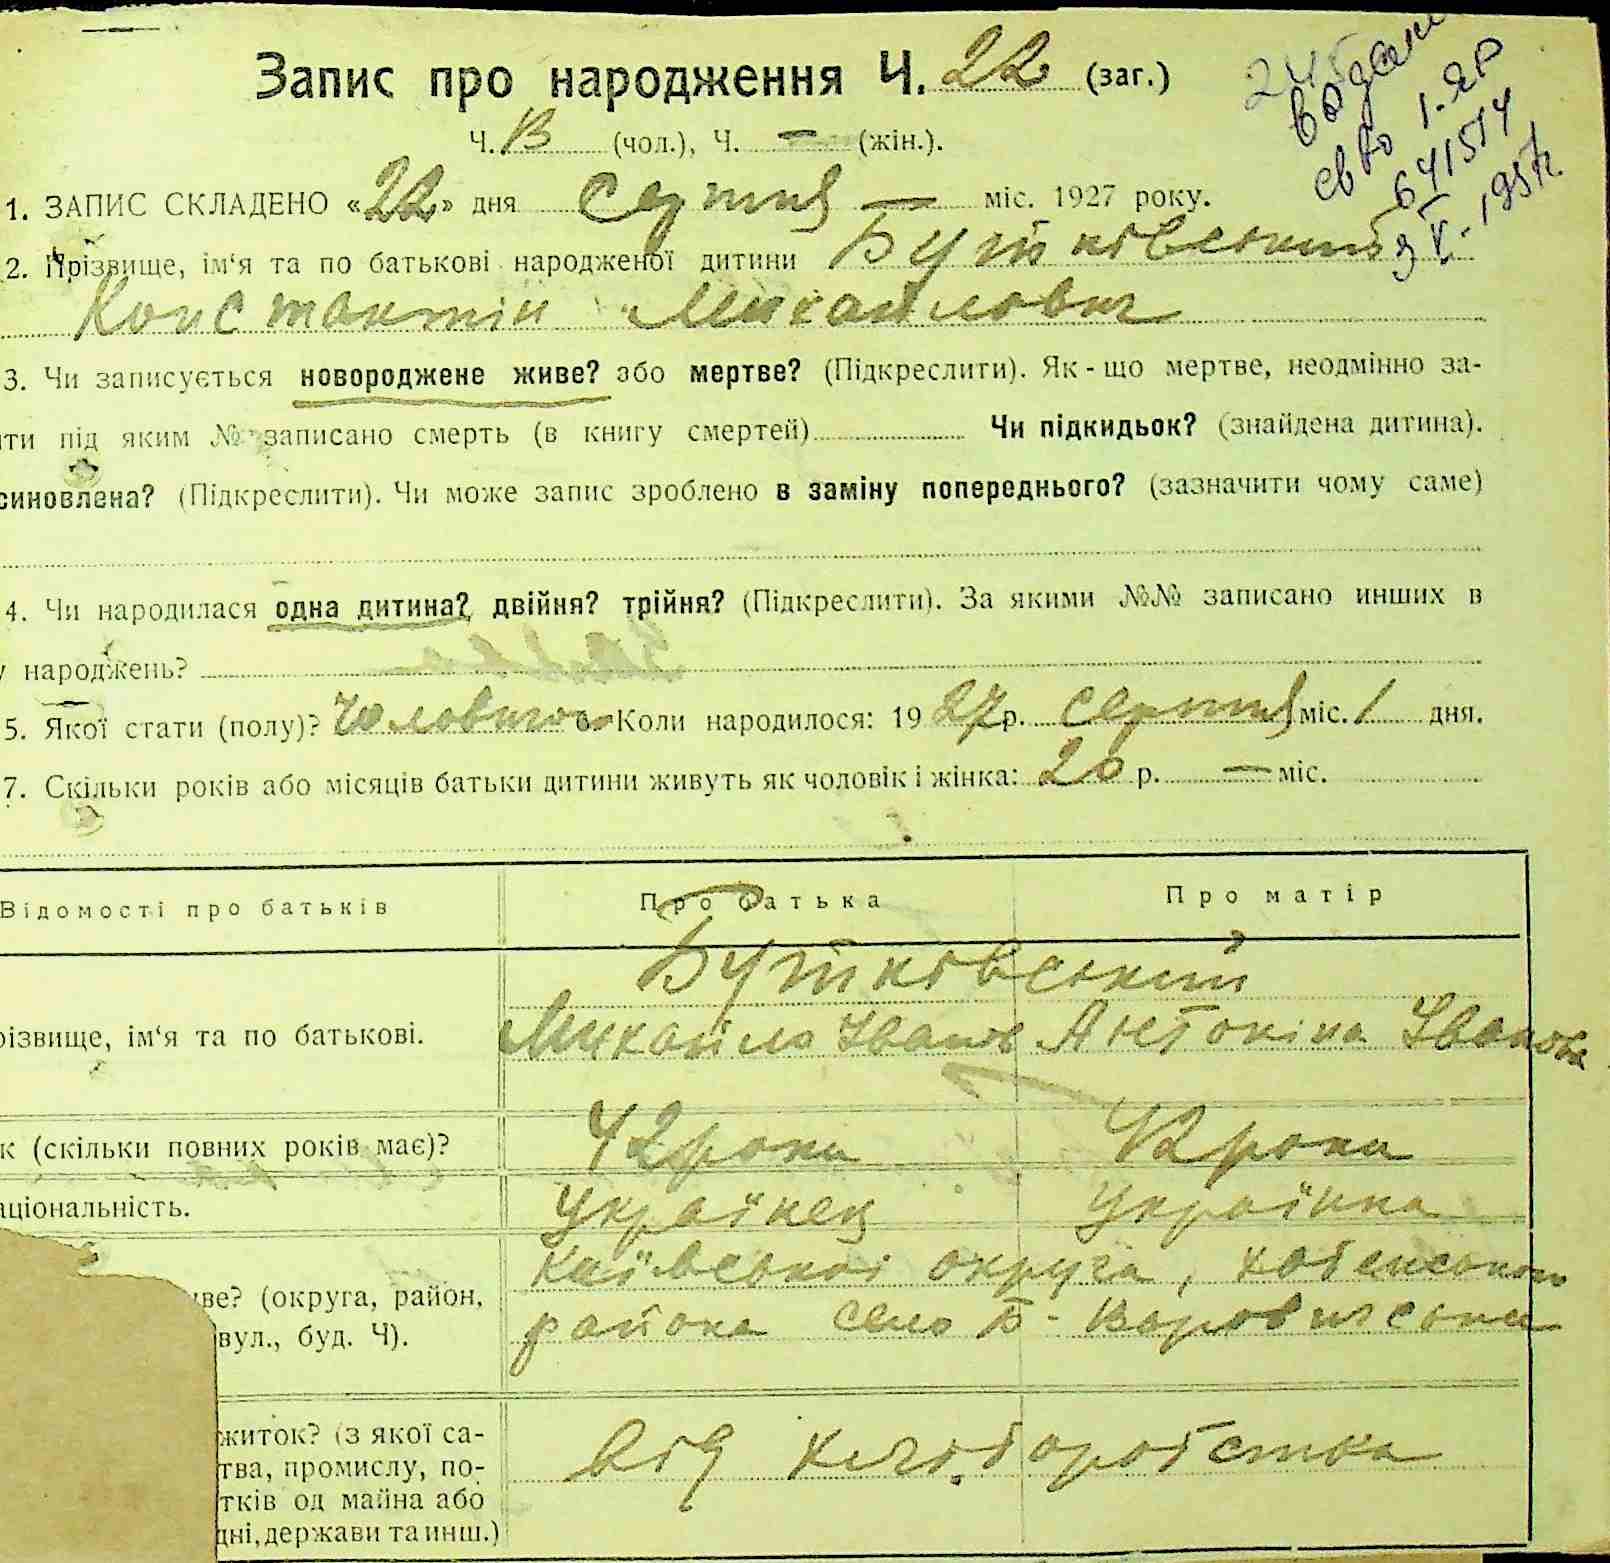 Запис про народження Ч. 22 (заг.)
Ч. 13 (чол.), Ч. — (жін.).
видано
св во 1-ЯР
641514
3 V - 1957г.
1. ЗАПИС СКЛАДЕНО «22» дня серпня — міс. 1927 року.
2. Прізвище, ім‘я та по батькові народженої дитини Бутківський
Константін Михайлович
3. Чи записується новороджене живе? або мертве? (Підкреслити). Як-що мертве, неодмінно за-
ти під яким № записано смерть (в книгу смертей) Чи підкидьок? (знайдена дитина).
синовлена? (Підкреслити). Чи може запис зроблено в заміну попереднього? (зазначити чому саме)
4. Чи народилася одна дитина? двійня? трійня? (Підкреслити). За якими №№ записано инших в
у народжень?
5. Якої стати (полу)? Чоловичого 6. Коли народилося: 1927 р. серпня міс. 1 дня.
7. Скільки років або місяців батьки дитини живуть як чоловік і жінка: 20 р. — міс.
Відомості про батьків Про батька Про матір
Бутківський
різвище, ім‘я та по батькові. Михайло Іванов Антоніна Іванова
к (скільки повних років має)? 42 роки 42 роки
аціональність. Українец Українка
Київської округа,
иве? (округа, район, района село Б-
вул., буд. Ч).
житок? (з якої са- від хліборобства
тва, промислу, по-
тків од майна або
дні, держави та инш.)